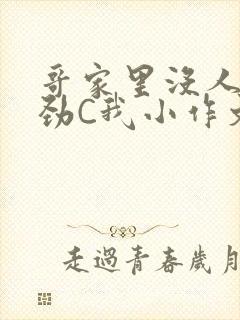 哥家里没人
劲C我小作文
走過青春歲月